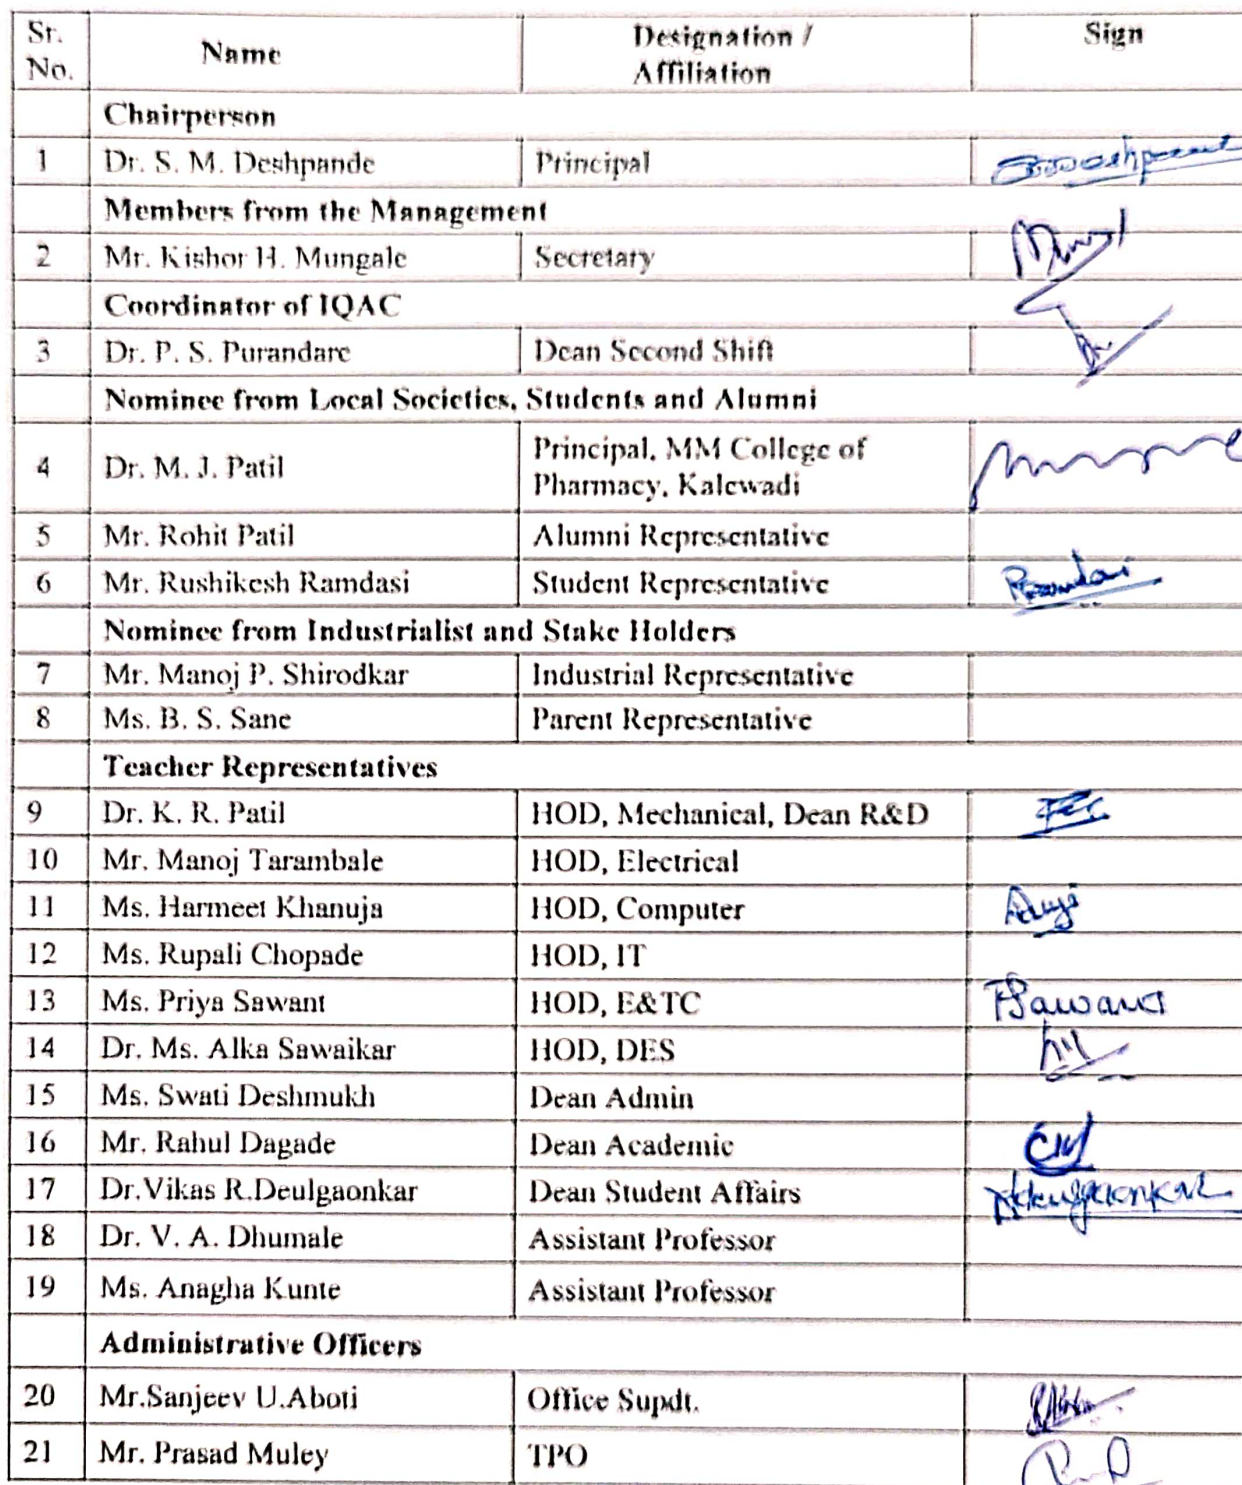 Sr. No. Name Designation / Affiliation Sign
Chairperson
1 Dr. S. M. Deshpande Principal
Members from the Management
2 Mr. Kishor H. Mungale Secretary
Coordinator of IQAC
3 Dr. P. S. Purandare Dean Second Shift
Nominee from Local Societies, Students and Alumni
4 Dr. M. J. Patil Principal, MM College of
Pharmacy, Kalewadi
5 Mr. Rohit Patil Alumni Representative
6 Mr. Rushikesh Ramdasi Student Representative
Nominee from Industrialist and Stake Holders
7 Mr. Manoj P. Shirodkar Industrial Representative
8 Ms. B. S. Sane Parent Representative
Teacher Representatives
9 Dr. K. R. Patil HOD, Mechanical, Dean R&D
10 Mr. Manoj Tarambale HOD, Electrical
11 Ms. Harmeet Khanuja HOD, Computer
12 Ms. Rupali Chopade HOD, IT
13 Ms. Priya Sawant HOD, E&TC PSawant
14 Dr. Ms. Alka Sawaikar HOD, DES
15 Ms. Swati Deshmukh Dean Admin
16 Mr. Rahul Dagade Dean Academic
17 Dr.Vikas R.Deulgaonkar Dean Student Affairs
18 Dr. V. A. Dhumale Assistant Professor
19 Ms. Anagha Kunte Assistant Professor
Administrative Officers
20 Mr.Sanjeev U.Aboti Office Supdt.
21 Mr. Prasad Muley TPO